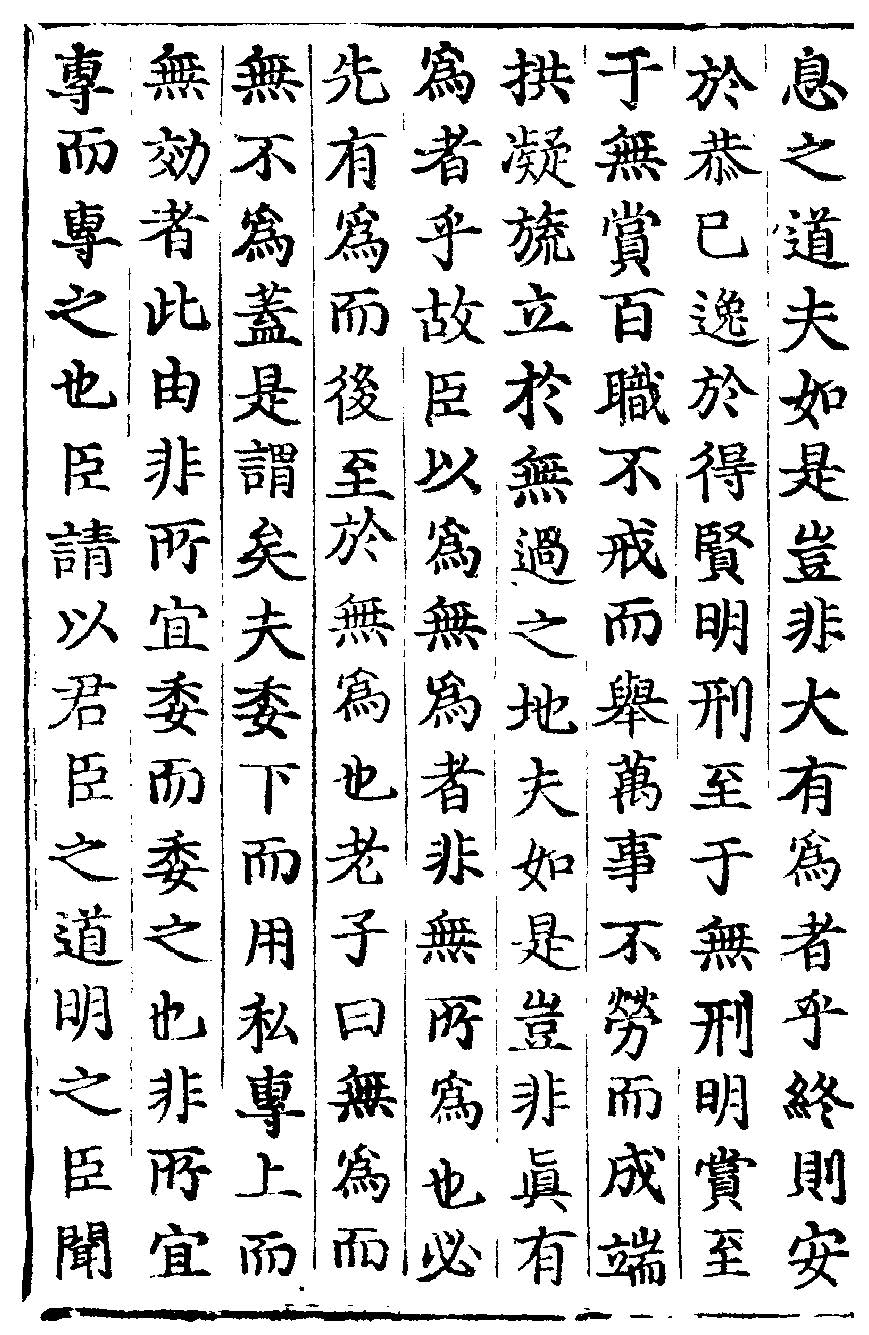 息之道夫如是豈非大有爲者乎終則安
於恭已逸於得賢明刑至于無刑明賞至
于無賞百職不戒而舉萬事不勞而成端
拱凝旒立於無過之地夫如是豈非眞有
爲者乎故臣以爲無爲者非無所爲也必
先有爲而後至於無爲也老子曰無爲而
無不爲蓋是謂矣夫委下而用私專上而
無効者此由非所宜委而委之也非所宜
專而專之也臣請以君臣之道明之臣聞